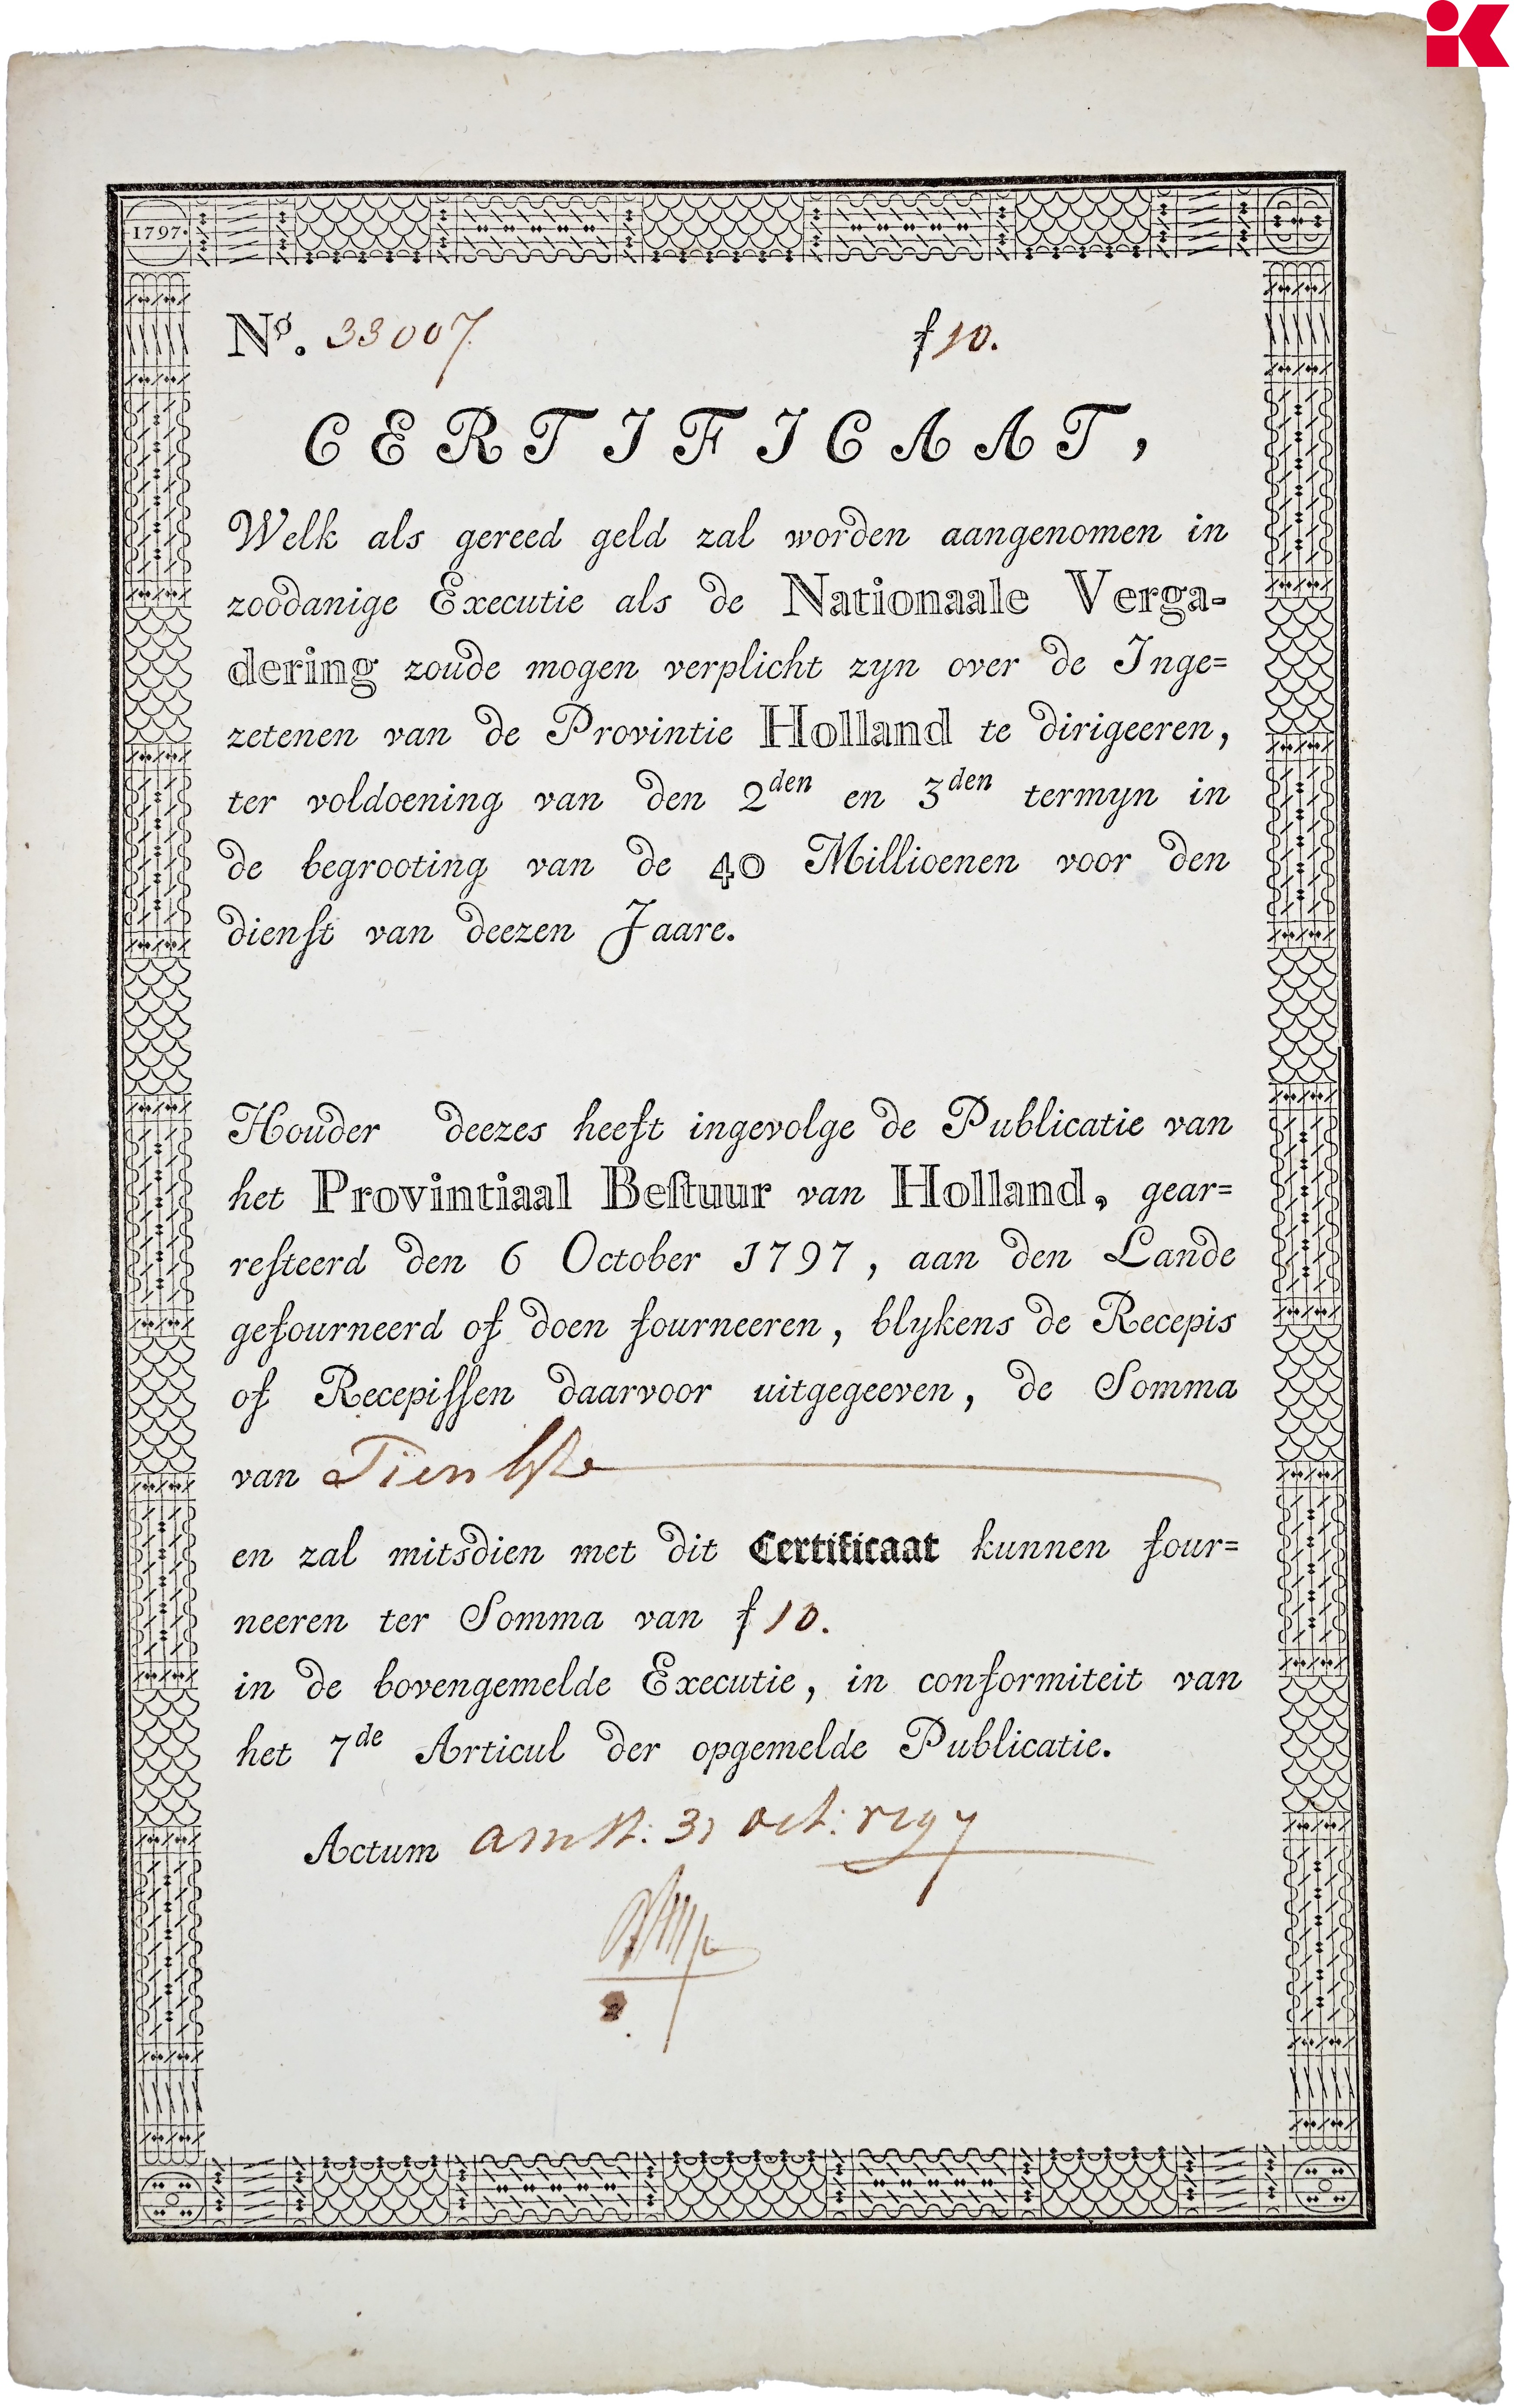 1797.
No. 33007
f 10.
CERTIFICAAT,
Welk als gereed geld zal worden aangenomen in
zoodanige Executie als de Nationaale Verga-
dering zoude mogen verplicht zyn over de Inge=
zetenen van de Provintie Holland te dirigeeren,
ter voldoening van den 2den en 3den termyn in
de begrooting van de 40 Millioenen voor den
dienſt van deezen Jaare.
Houder deezes heeft ingevolge de Publicatie van
het Provintiaal Beſtuur van Holland, gear=
reſteerd den 6 October 1797, aan den Lande
gefourneerd of doen fourneeren, blykens de Recepis
of Recepiſſen daarvoor uitgegeeven, de Somma
van Tien
en zal mitsdien met dit Certificaat kunnen four=
neeren ter Somma van f 10.
in de bovengemelde Executie, in conformiteit van
het 7de Articul der opgemelde Publicatie.
Actum Amst: 31 Oct: 1797